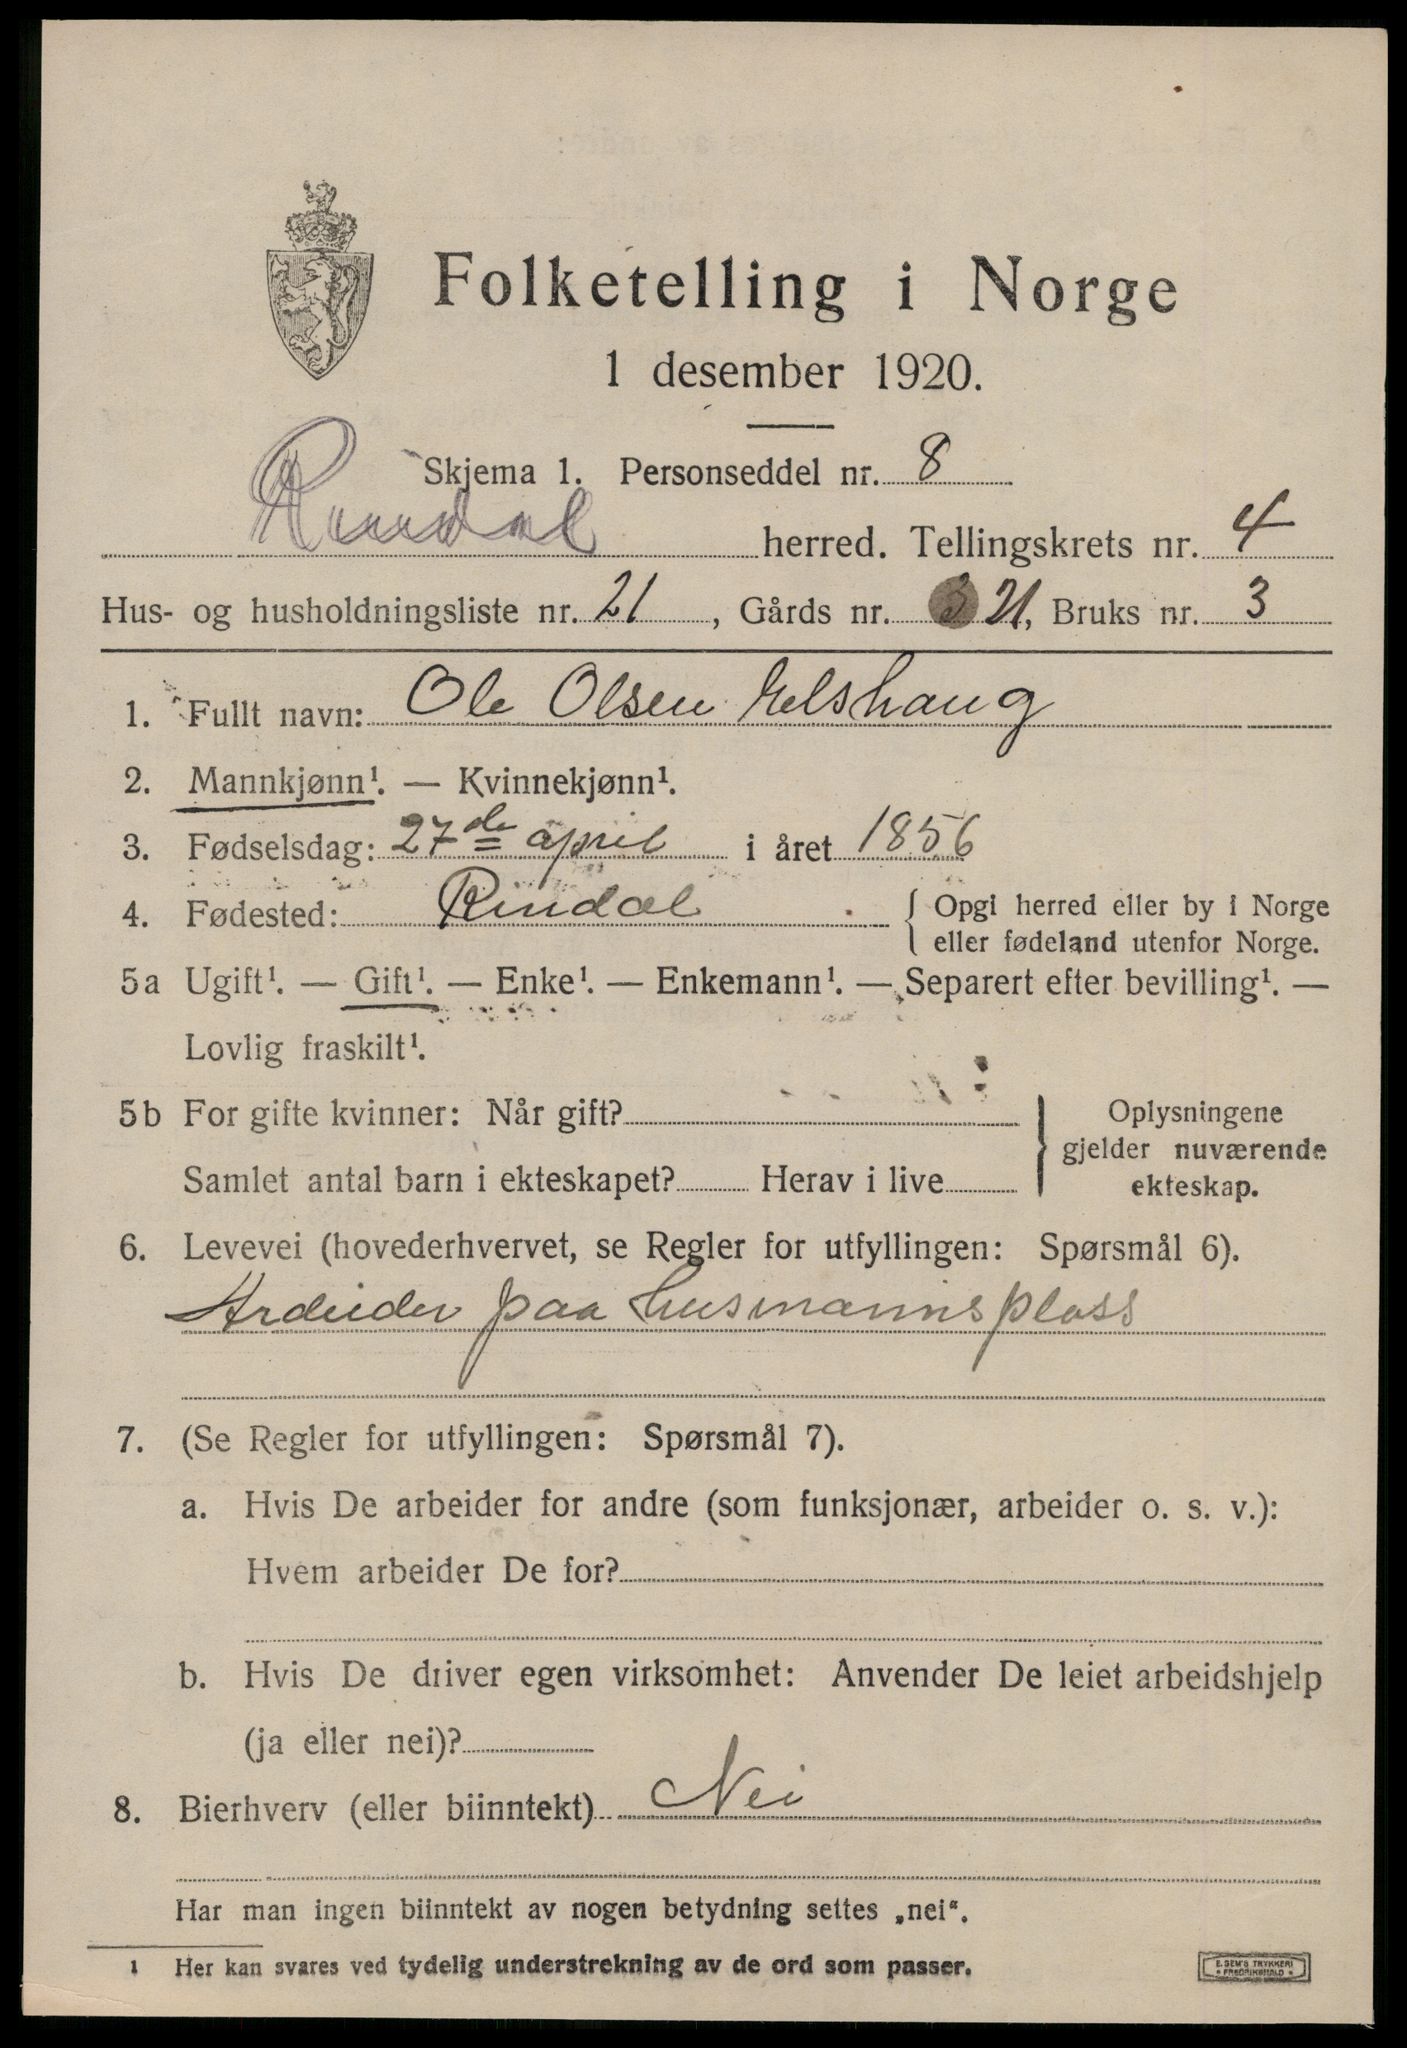 Folketelling i Norge
1 desember 1920.
Skjema 1. Personseddel nr. 8
Rindal herred. Tellingskrets nr. 4
Hus- og husholdningsliste nr. 21, Gårds nr. 3 21, Bruks nr. 3
1. Fullt navn: Ole Olsen Helshaug
2. Mannkjønn¹. — Kvinnekjønn¹.
3. Fødselsdag: 27de april i året 1856
4. Fødested: Rindal { Opgi herred eller by i Norge
eller fødeland utenfor Norge.
5a Ugift¹. — Gift¹. — Enke¹. — Enkemann¹. — Separert efter bevilling¹. —
Lovlig fraskilt¹.
5b For gifte kvinner: Når gift?
Samlet antal barn i ekteskapet? Herav i live
} Oplysningene
gjelder nuværende
ekteskap.
6. Levevei (hovederhvervet, se Regler for utfyllingen: Spørsmål 6).
Arbeider paa husmannsplass
7. (Se Regler for utfyllingen: Spørsmål 7).
a. Hvis De arbeider for andre (som funksjonær, arbeider o. s. v.):
Hvem arbeider De for?
b. Hvis De driver egen virksomhet: Anvender De leiet arbeidshjelp
(ja eller nei)?
8. Bierhverv (eller biinntekt) Nei
Har man ingen biinntekt av nogen betydning settes „nei“.
1 Her kan svares ved tydelig understrekning av de ord som passer.
E. SEM'S TRYKKERI
• FREDRIKSHALD •